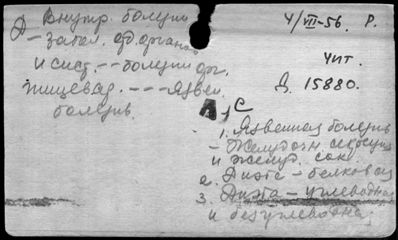 Внутр. болезни
– забол. отд. органов
и сист. – – болезни орг.
пищевар. – – – Язвен.
болезнь
4/VII-56. Р.
Чит.
Д. 15880.
А, С
1. Язвенная болезнь
– Желудочн. секреция
и желуд. сок.
2. Диэта – белковая
3. Диэта – углеводная
и безуглеводная